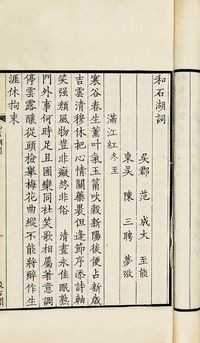 和石湖詞
吳郡 范 成大 至能
東吳 陳 三聘 夢弼
滿江紅 冬至
寒谷春生薰葉氣玉筩吹穀新陽後便占新歲
吉雲清穆休把心情關藥裹但逢節序添詩軸
笑强顏風物豈非癡終非俗 清晝永佳眠熟
門外事何時足且團欒同社笑歌相屬著意調
停雲露釀從頭檢舉梅花曲縱不能將醉作生
涯休拘束